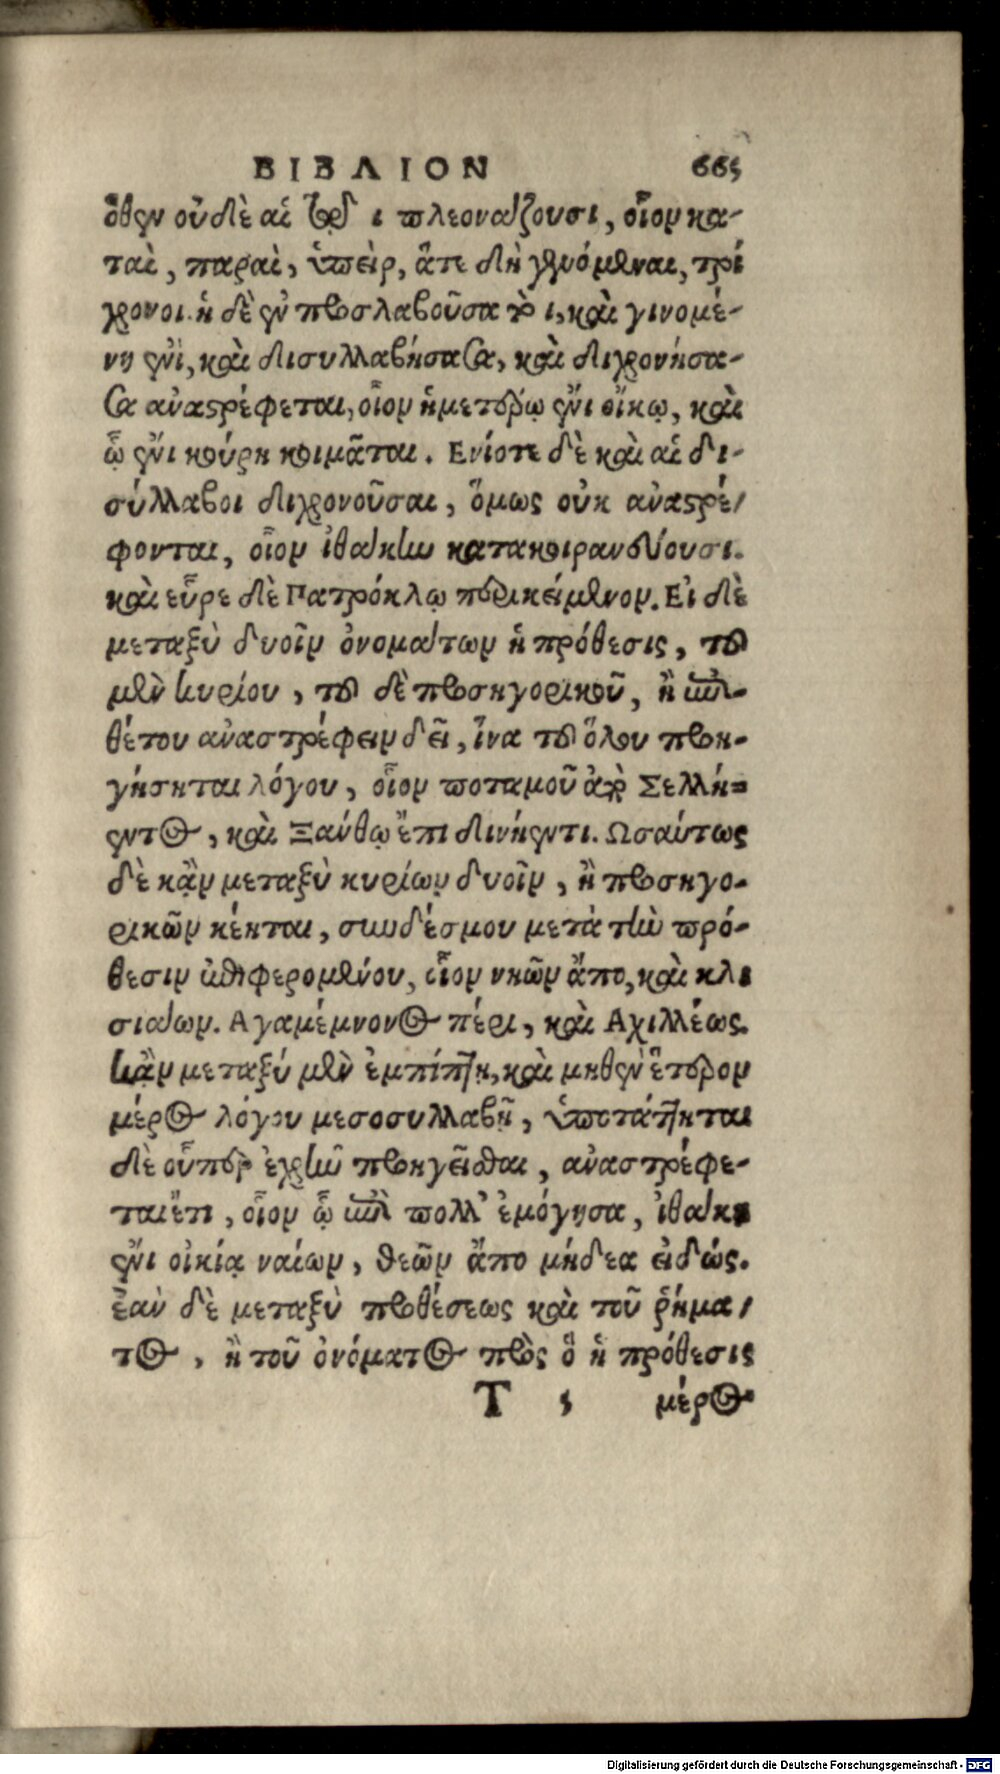 ΒΙΒΛΙΟΝ 665
ὅθεν οὐδὲ αἱ τῷ ι πλεονάζουσι, οἷον κα-
ταὶ, παραὶ, ὑπεὶρ, ἅτε δὴ γενόμεναι, τρί
χρονοι. ἡ δὲ ἐν προσλαβοῦσα τὸ ι, καὶ γινομέ-
νη ἐνὶ, καὶ δισυλλαβήσασα, καὶ διχρονήσα-
σα ἀναστρέφεται, οἷον ἡμετέρῳ ἔνι οἴκῳ, καὶ
ᾧ ἔνι κούρη κοιμᾶται. Ενίοτε δὲ καὶ αἱ δι-
σύλλαβοι διχρονοῦσαι, ὅμως οὐκ ἀναστρέ-
φονται, οἷον ἰθάκην κατακοιρανέουσι.
καὶ εὗρε δὲ Πατρόκλῳ περικείμενον. Εἰ δὲ
μεταξὺ δυοῖν ὀνομάτων ἡ πρόθεσις, τοῦ
μὲν κυρίου, τοῦ δὲ προσηγορικοῦ, ἢ ἐπι-
θέτου ἀναστρέφειν δεῖ, ἵνα τοῦ ὅλου προη-
γήσηται λόγου, οἷον ποταμοῦ ἄπο Σελλή-
εντος, καὶ Ξάνθῳ ἔπι δινήεντι. Ωσαύτως
δὲ κἂν μεταξὺ κυρίων δυοῖν, ἢ προσηγο-
ρικῶν κέηται, συνδέσμου μετὰ τὴν πρό-
θεσιν ἐπιφερομένου, οἷον νηῶν ἄπο, καὶ κλι
σιάων. Αγαμέμνονος πέρι, καὶ Αχιλλέως.
κἂν μεταξύ μὲν ἐμπίπτῃ, καὶ μηθὲν ἕτερον
μέρος λόγου μεσοσυλλαβῇ, ὑποτάττηται
δὲ οὗπερ ἐχρῆν προηγεῖσθαι, ἀναστρέφε-
ται ἔτι, οἷον ᾧ ἔπι πολλ' ἐμόγησα, ἰθάκῃ
ἔνι οἰκία ναίων, θεῶν ἄπο μήδεα εἰδώς.
ἐὰν δὲ μεταξὺ προθέσεως καὶ τοῦ ῥήμα-
τος, ἢ τοῦ ὀνόματος πρὸς ὃ ἡ πρόθεσις
T 5 μέρος
Digitalisierung gefördert durch die Deutsche Forschungsgemeinschaft - DFG